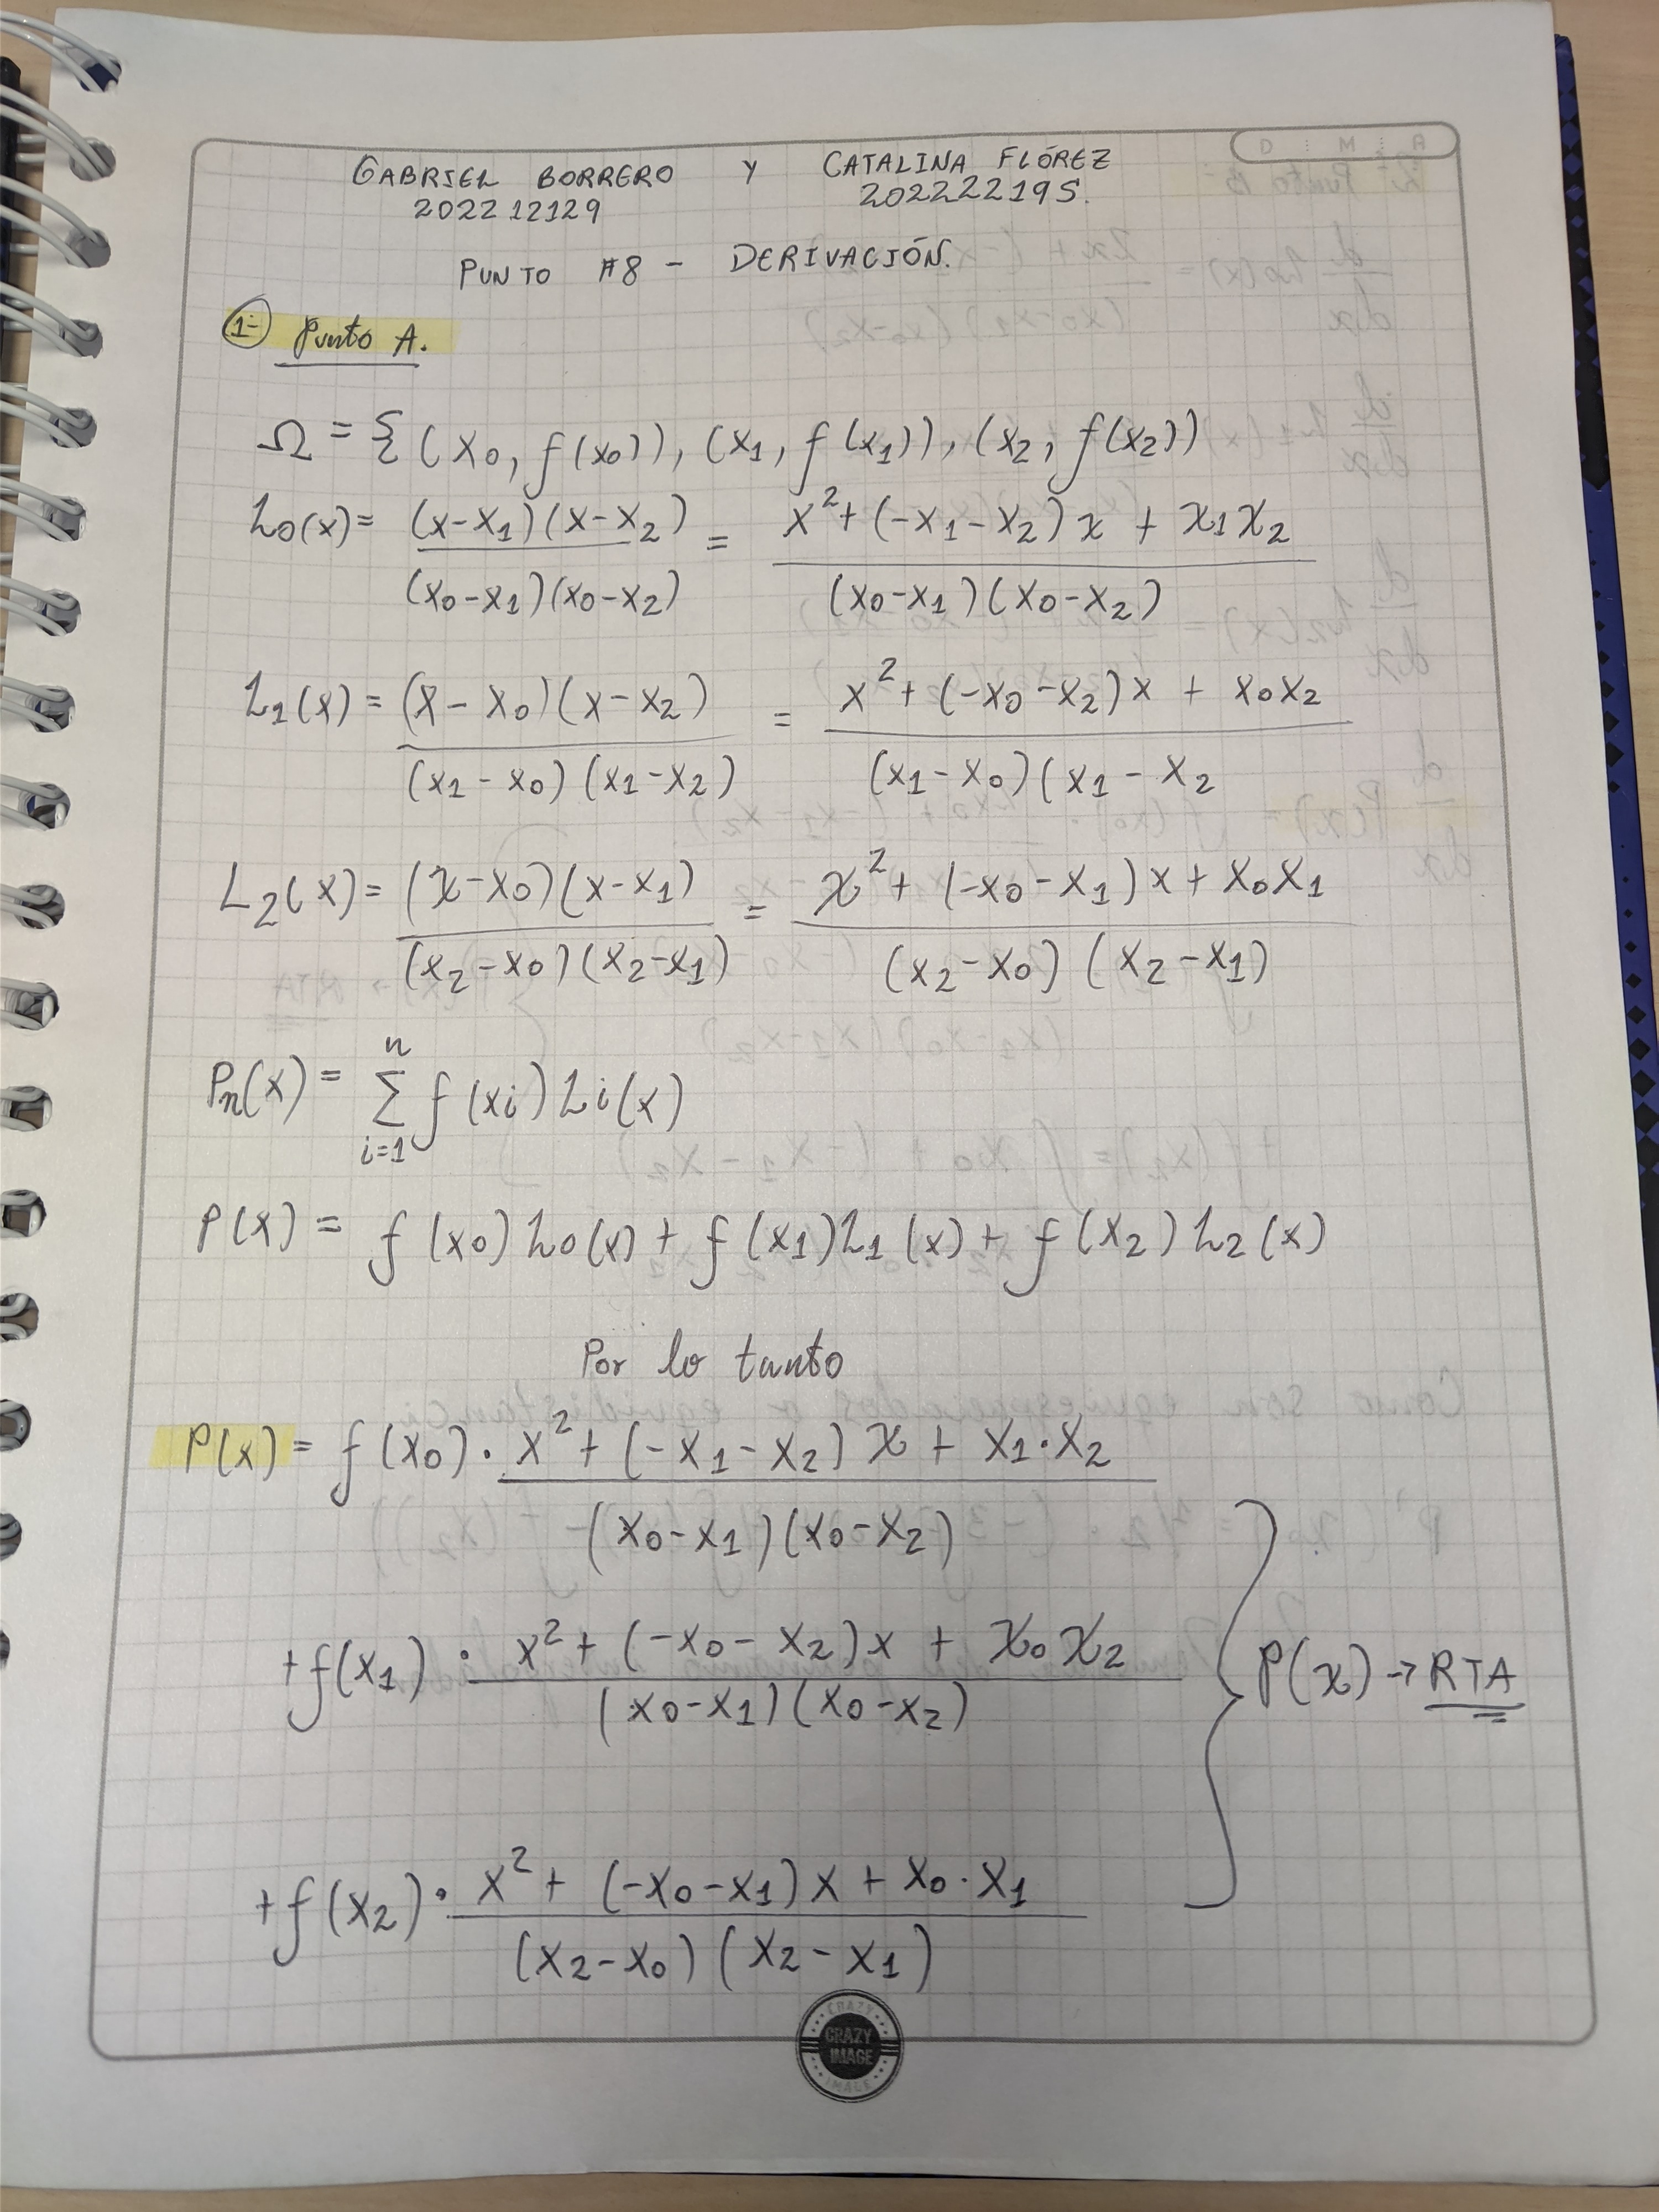 A M D
GABRIEL BORRERO Y CATALINA FLÓREZ
202212129 202222195.
PUNTO #8 - DERIVACIÓN.
1- Punto A.
Ω = { (x0, f(x0)), (x1, f(x1)), (x2, f(x2))
L0(x) = (x-x1)(x-x2) = x² + (-x1-x2)x + x1x2
(x0-x1)(x0-x2) (x0-x1)(x0-x2)
L1(x) = (x-x0)(x-x2) = x² + (-x0-x2)x + x0x2
(x1-x0)(x1-x2) (x1-x0)(x1-x2
L2(x) = (x-x0)(x-x1) = x² + (-x0-x1)x + x0x1
(x2-x0)(x2-x1) (x2-x0)(x2-x1)
n
Pn(x) = Σ f(xi) Li(x)
i=1
P(x) = f(x0)L0(x) + f(x1)L1(x) + f(x2)L2(x)
Por lo tanto
P(x) = f(x0) · x² + (-x1-x2)x + x1·x2
(x0-x1)(x0-x2)
+f(x1) · x² + (-x0-x2)x + x0x2 P(x) → RTA
(x0-x1)(x0-x2)
+f(x2) · x² + (-x0-x1)x + x0·x1
(x2-x0)(x2-x1)
CRAZY
CRAZY
IMAGE
IMAGE